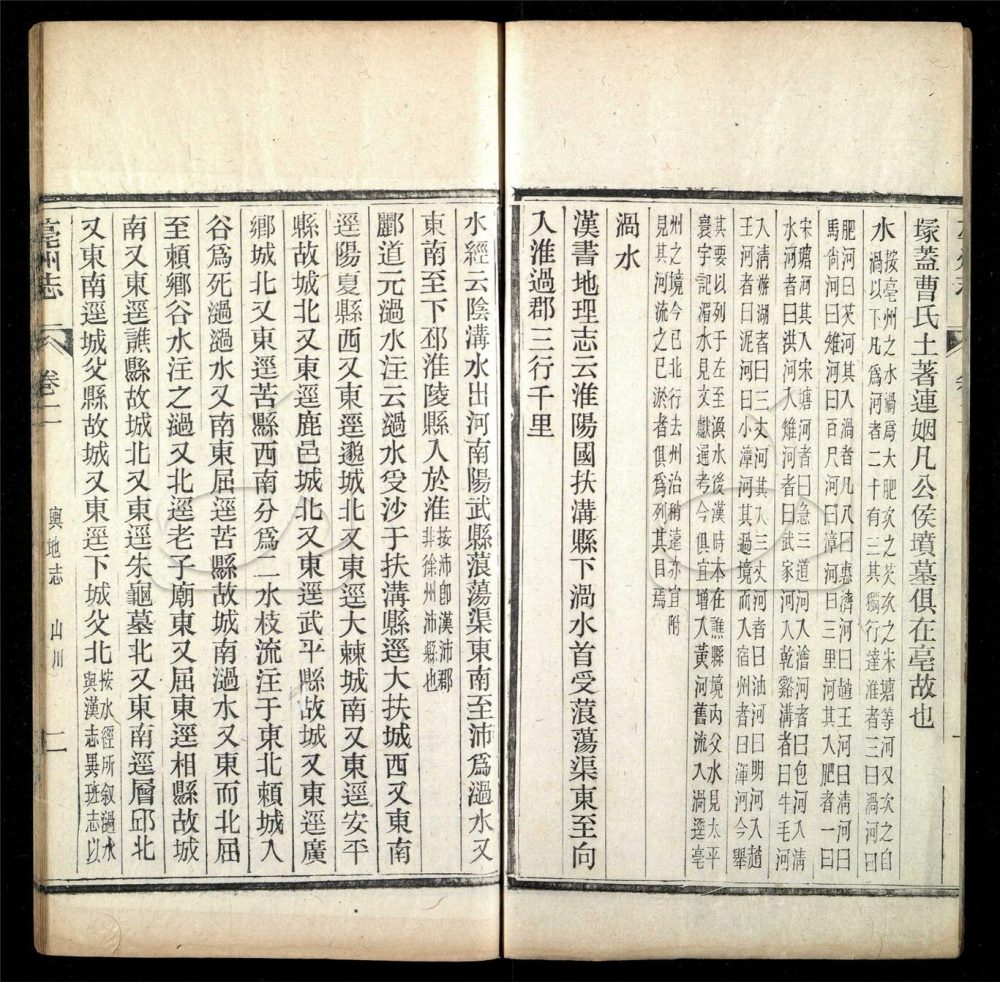 塚蓋曹氏土著連姻凡公侯墳墓俱在亳故也
水
按亳州之水渦爲大肥次之茨次之宋塘等河又次之自
渦以下凡爲河者二千有三其獨行達淮者三曰渦河曰
肥河曰茨河其入渦者凡八曰惠濟河曰趙王河曰清河曰
馬尚河曰雉河曰百尺河曰漳河曰三里河其入肥者一曰
宋塘河其入宋塘河者曰急三道河入澮河者曰包河入清
水河者曰洪河入雉河者曰武家河入乾谿溝者曰牛毛河
入清游湖者曰三丈河其入三丈河者曰油河曰明河入趙
王河者曰泥河曰小漳河其過境而入宿州者曰渾河今舉
其要以列于左至渙水後漢時本在譙縣境內父水見太平
寰宇記湄水見文獻通考今俱宜增入黃河舊流入渦逕亳
州之境今已北行去州治稍遠亦宜附
見其河流之已淤者俱爲列其目焉
渦水
漢書地理志云淮陽國扶溝縣下渦水首受蒗蕩渠東至向
入淮過郡三行千里
水經云陰溝水出河南陽武縣蒗蕩渠東南至沛爲濄水又
東南至下邳淮陵縣入於淮
按沛卽漢沛郡
非徐州沛縣也
酈道元濄水注云濄水受沙于扶溝縣逕大扶城西又東南
逕陽夏縣西又東逕邈城北又東逕大棘城南又東逕安平
縣故城北又東逕鹿邑城北又東逕武平縣故城又東逕廣
鄉城北又東逕苦縣西南分爲二水枝流注于東北賴城入
谷爲死濄水又南東屈逕苦縣故城南濄水又東而北屈
至賴鄉谷水注之濄又北逕老子廟東又屈東逕相縣故城
南又東逕譙縣故城北又東逕朱龜墓北又東南逕層邱北
又東南逕城父縣故城又東逕下城父北
按水經所叙濄水
與漢志異班志以
亳州志
卷二
輿地志
山川
二